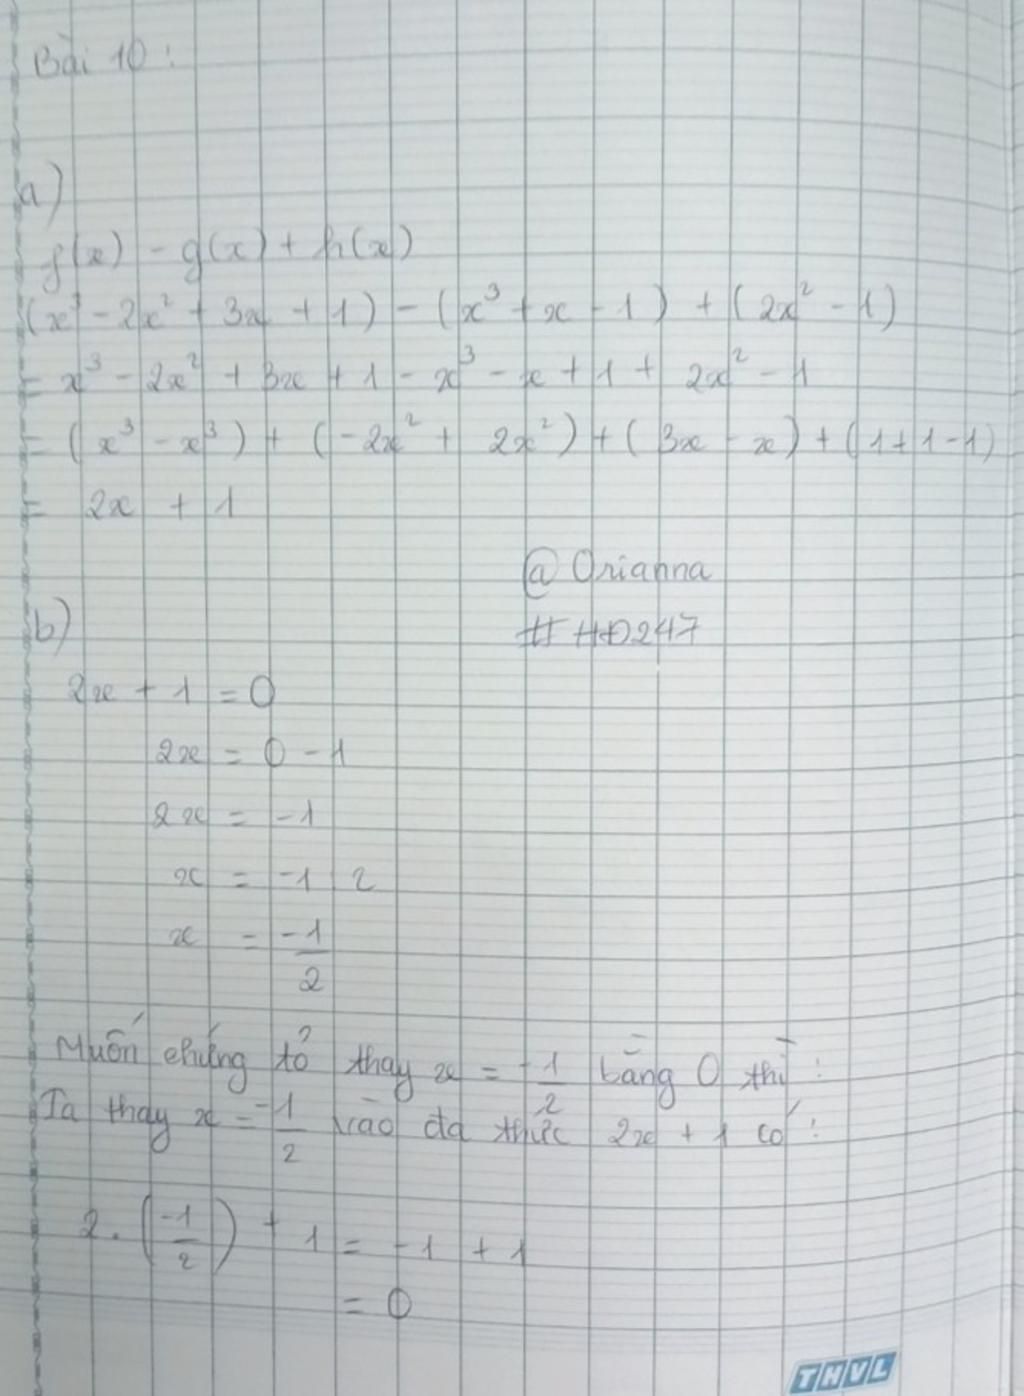 Bài 10 :
a)
f(x) - g(x) + h(x)
(x³ - 2x² + 3x + 1) - (x³ + x - 1) + (2x² - 1)
= x³ - 2x² + 3x + 1 - x³ - x + 1 + 2x² - 1
= (x³ - x³) + (-2x² + 2x²) + (3x - x) + (1 + 1 - 1)
= 2x + 1
@ Orianna
# HĐ247
b)
2x + 1 = 0
2x = 0 - 1
2x = -1
x = -1 2
x = -1/2
Muốn chứng tỏ thay x = -1/2 bằng 0 thì :
Ta thay x = -1/2 vào đa thức 2x + 1 có :
2. (-1/2) + 1 = -1 + 1
= 0
THVL